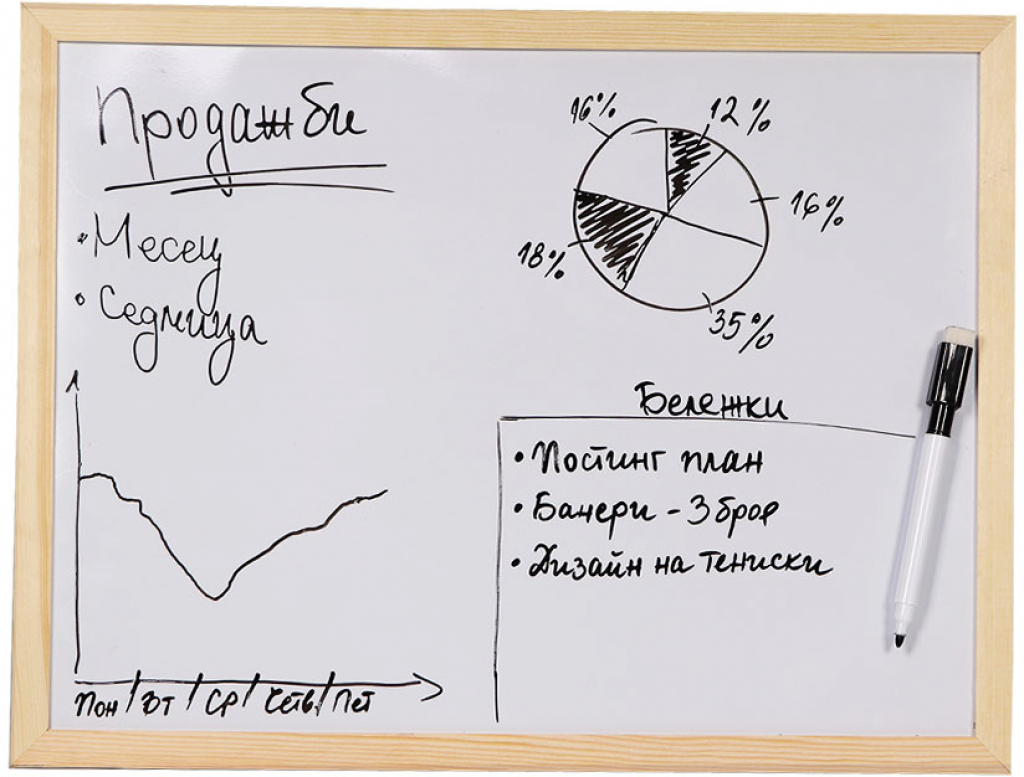 Продажби
• Месец
• Седмица
16%
12%
16%
18%
35%
Бележки
• Постинг план
• Банери - 3 броя
• Дизайн на тениски
Пон / Вт / Ср / Четв / Пет